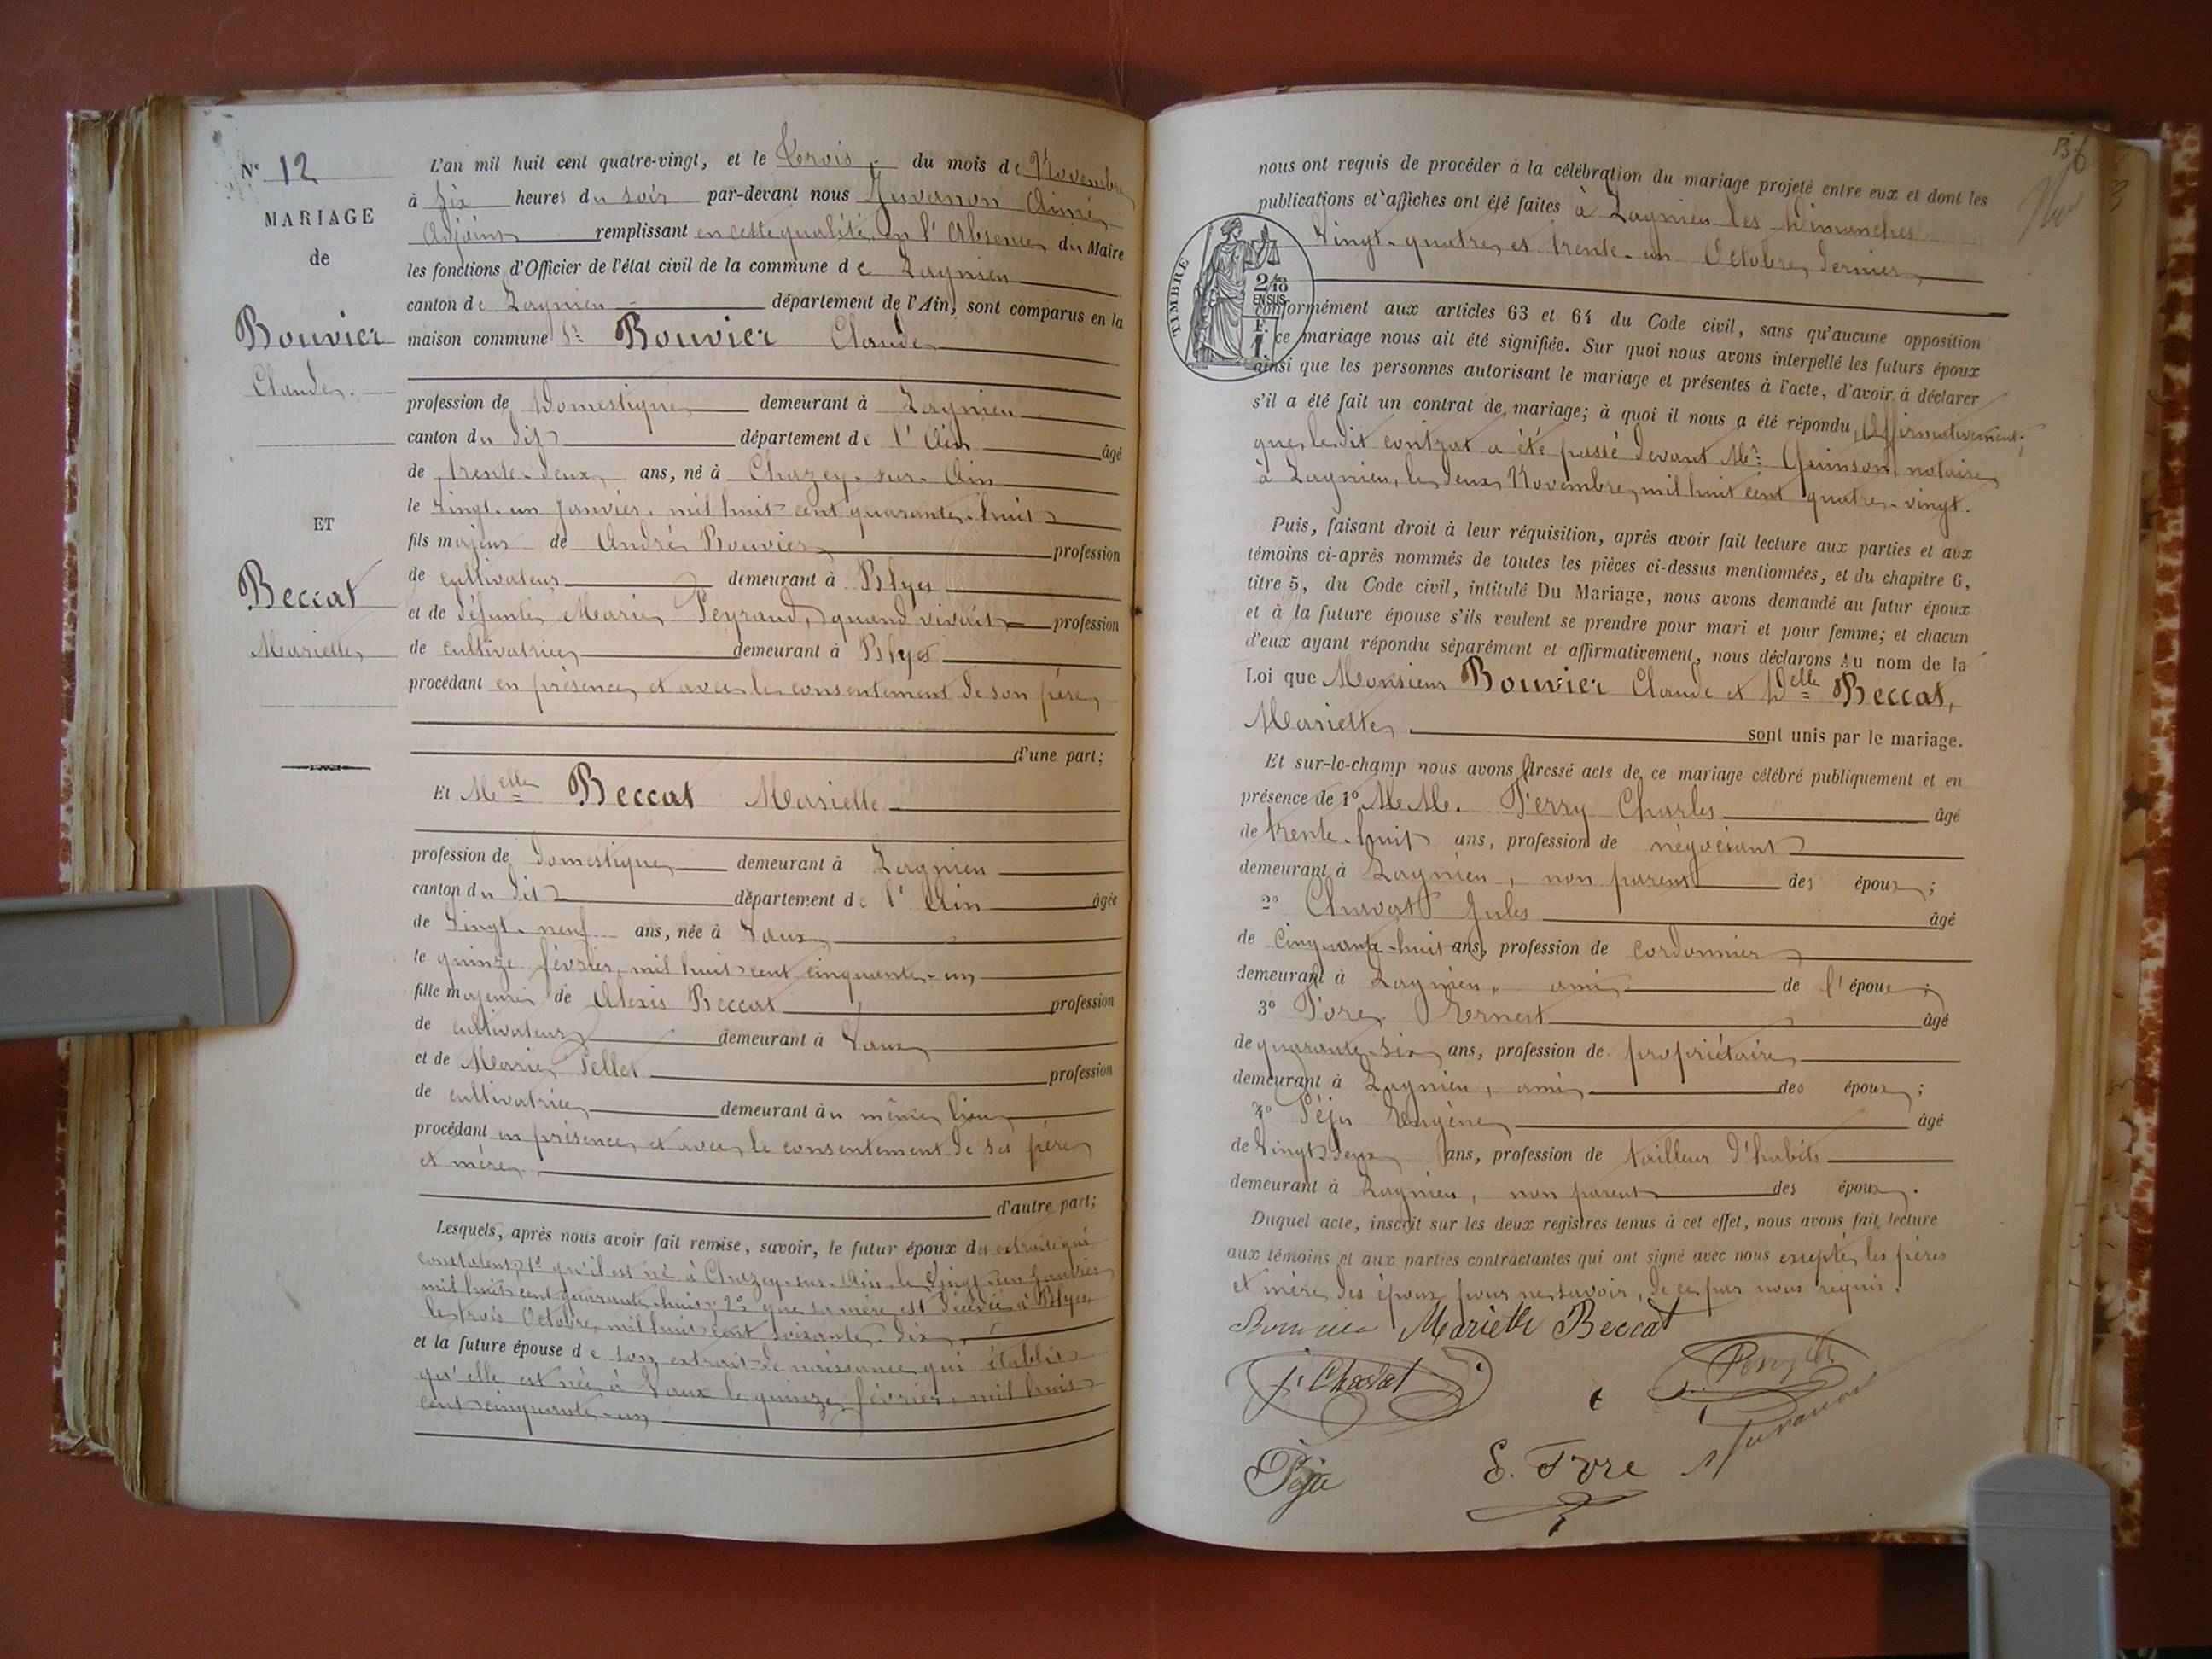 N° 12
MARIAGE
de
Bouvier
Claude.
ET
Beccat
Mariette
L'an mil huit cent quatre-vingt, et le trois du mois de Novembre
à six heures du soir par-devant nous Juvanon Aimé,
Adjoint remplissant en cette qualité, en l'Absence du Maire
les fonctions d'Officier de l'état civil de la commune de Lagnieu
canton de Lagnieu département de l'Ain, sont comparus en la
maison commune Sr. Bouvier Claude
profession de Domestique demeurant à Lagnieu
canton du dit département de l'Ain âgé
de trente-deux ans, né à Chazey-sur-Ain
le vingt-un Janvier, mil huit cent quarante-huit
fils majeur de André Bouvier profession
de cultivateur demeurant à Blyes
et de défunte Marie Peyraud, quand vivait profession
de cultivatrice demeurant à Blyes
procédant en présence et avec le consentement de son père,
d'une part;
Et Melle Beccat Mariette
profession de domestique demeurant à Lagnieu
canton du dit département de l'Ain âgée
de vingt-neuf ans, née à Vaux
le quinze février, mil huit cent cinquante-un
fille majeure de Alexis Beccat profession
de cultivateur demeurant à Vaux
et de Marie Pellet profession
de cultivatrice demeurant au même lieu
procédant en présence et avec le consentement de ses père
et mère,
d'autre part;
Lesquels, après nous avoir fait remise, savoir, le futur époux des extraits qui
constatent, 1° qu'il est né à Chazey-sur-Ain le vingt-un Janvier
mil huit cent quarante-huit; 2° que sa mère est décédée à Blyes
le trois Octobre mil huit cent soixante-dix,
et la future épouse de son extrait de naissance qui établit
qu'elle est née à Vaux le quinze février, mil huit
cent cinquante-un
nous ont requis de procéder à la célébration du mariage projeté entre eux et dont les
publications et affiches ont été faites à Lagnieu les Dimanches
vingt-quatre et trente-un Octobre dernier,
TIMBRE
2/10
EN SUS
F.
1
conformément aux articles 63 et 64 du Code civil, sans qu'aucune opposition
ce mariage nous ait été signifiée. Sur quoi nous avons interpellé les futurs époux
ainsi que les personnes autorisant le mariage et présentes à l'acte, d'avoir à déclarer
s'il a été fait un contrat de mariage; à quoi il nous a été répondu, Affirmativement;
que le dit contrat a été passé devant Me. Quinson, notaire
à Lagnieu, le deux Novembre, mil huit cent quatre-vingt.
Puis, faisant droit à leur réquisition, après avoir fait lecture aux parties et aux
témoins ci-après nommés de toutes les pièces ci-dessus mentionnées, et du chapitre 6,
titre 5, du Code civil, intitulé Du Mariage, nous avons demandé au futur époux
et à la future épouse s'ils veulent se prendre pour mari et pour femme; et chacun
d'eux ayant répondu séparément et affirmativement, nous déclarons Au nom de la
Loi que Monsieur Bouvier Claude et Delle Beccat,
Mariette, sont unis par le mariage.
Et sur-le-champ nous avons dressé acte de ce mariage célébré publiquement et en
présence de 1° MM. Perry Charles âgé
de trente-huit ans, profession de négociant
demeurant à Lagnieu, non parent des époux;
2° Chavat Jules âgé
de Cinquante-huit ans, profession de cordonnier
demeurant à Lagnieu, ami de l'époux;
3° Ernest âgé
de quarante-six ans, profession de propriétaire
demeurant à Lagnieu, ami des époux;
4° Péju Eugène âgé
de vingt-deux ans, profession de tailleur d'habits
demeurant à Lagnieu, non parent des époux.
Duquel acte, inscrit sur les deux registres tenus à cet effet, nous avons fait lecture
aux témoins et aux parties contractantes qui ont signé avec nous excepté les pères
et mère des époux pour ne savoir, de ce par nous requis.
Bouvier Mariette Beccat
J. Chavat
Péju Juvanon